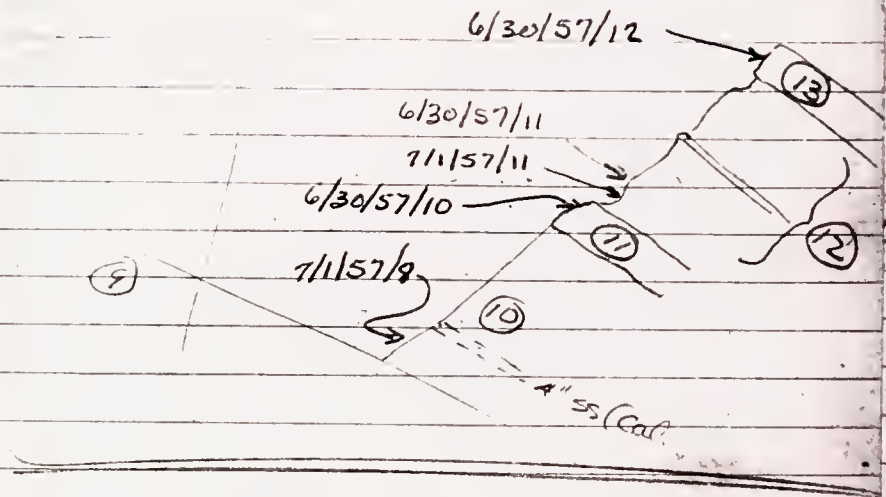 6/30/57/12
13
6/30/57/11
7/1/57/11
6/30/57/10
11
12
7/1/57/8
9
10
4" SS (Cal.